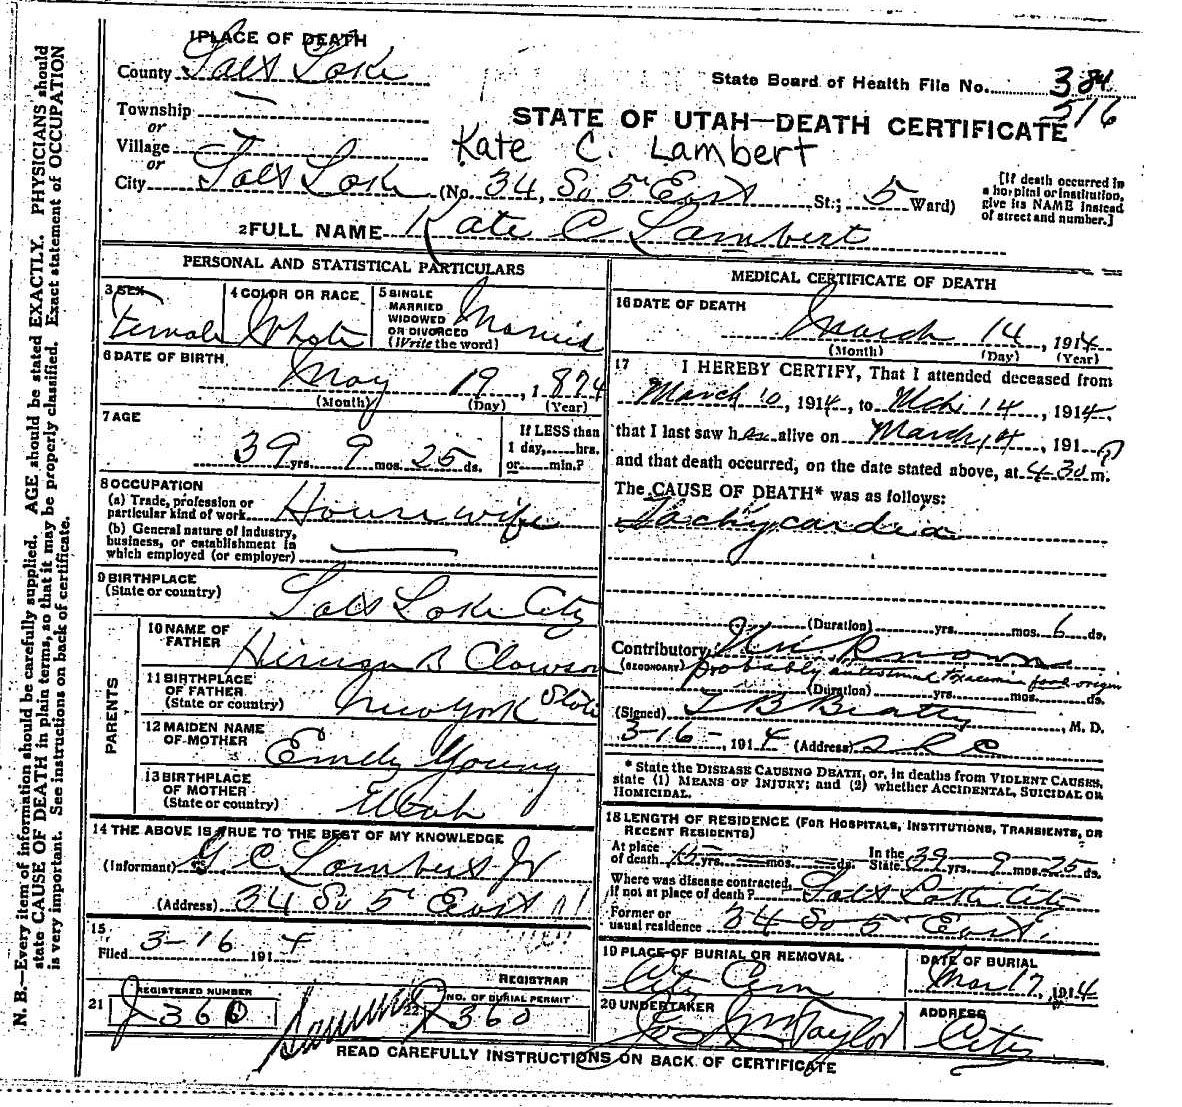 N. B.—Every item of information should be carefully supplied. AGE should be stated EXACTLY. PHYSICIANS should
state CAUSE OF DEATH in plain terms, so that it may be properly classified. Exact statement of OCCUPATION
is very important. See instructions on back of certificate.
1 PLACE OF DEATH
County Salt Lake
State Board of Health File No. 384
516
Township
or
Village
or
STATE OF UTAH—DEATH CERTIFICATE
Kate C. Lambert
City Salt Lake (No. 34, So 5 East St.; 5 Ward)
[If death occurred in
a hospital or institution,
give its NAME instead
of street and number.]
2 FULL NAME Kate C Lambert
PERSONAL AND STATISTICAL PARTICULARS
3 SEX
Female
4 COLOR OR RACE
White
5 SINGLE
MARRIED
WIDOWED
OR DIVORCED
(Write the word)
Married
6 DATE OF BIRTH
May 19, 1874
(Month) (Day) (Year)
7 AGE
39 yrs. 9 mos. 25 ds.
If LESS than
1 day, hrs.
or min.?
8 OCCUPATION
(a) Trade, profession or
particular kind of work Housewife
(b) General nature of industry,
business, or establishment in
which employed (or employer)
9 BIRTHPLACE
(State or country) Salt Lake City
PARENTS
10 NAME OF
FATHER Hirum B Clawson
11 BIRTHPLACE
OF FATHER
(State or country) New York State
12 MAIDEN NAME
OF MOTHER Emily Young
13 BIRTHPLACE
OF MOTHER
(State or country) Utah
14 THE ABOVE IS TRUE TO THE BEST OF MY KNOWLEDGE
(Informant) G C Lambert Jr
(Address) 34 So 5 East
15
Filed 3-16 1914
REGISTRAR
21 REGISTERED NUMBER
J 360
22 NO. OF BURIAL PERMIT
J 360
MEDICAL CERTIFICATE OF DEATH
16 DATE OF DEATH
March 14, 1914
(Month) (Day) (Year)
17 I HEREBY CERTIFY, That I attended deceased from
March 10, 1914, to Mch 14, 1914,
that I last saw her alive on March 14, 191
and that death occurred, on the date stated above, at 4-30 m.
The CAUSE OF DEATH* was as follows:
Tachycardia
(Duration) yrs. mos. 6 ds.
Contributory Unknown
(SECONDARY) probably intestinal toxaemia food origin
(Duration) yrs. mos. ds.
(Signed) T B Beatty, M. D.
3-16-, 1914 (Address) S L C
* State the DISEASE CAUSING DEATH, or, in deaths from VIOLENT CAUSES,
state (1) MEANS OF INJURY; and (2) whether ACCIDENTAL, SUICIDAL OR
HOMICIDAL.
18 LENGTH OF RESIDENCE (FOR HOSPITALS, INSTITUTIONS, TRANSIENTS, OR
RECENT RESIDENTS)
At place
of death 15 yrs. mos. ds.
In the
State 39 yrs. 9 mos. 25 ds.
Where was disease contracted,
if not at place of death? Salt Lake City
Former or
usual residence 34 So 5 East.
19 PLACE OF BURIAL OR REMOVAL
City Cem
DATE OF BURIAL
Mar 17, 1914
20 UNDERTAKER
Jos Wm Taylor
ADDRESS
City
READ CAREFULLY INSTRUCTIONS ON BACK OF CERTIFICATE